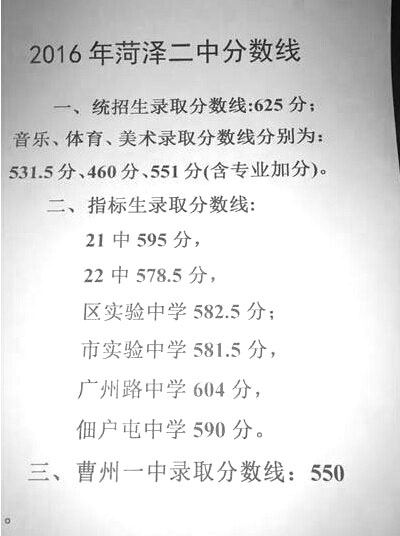 2016年菏泽二中分数线
一、统招生录取分数线:625分;
音乐、体育、美术录取分数线分别为:
531.5分、460分、551分(含专业加分)。
二、指标生录取分数线:
21中595分,
22中578.5分,
区实验中学582.5分;
市实验中学581.5分,
广州路中学604分,
佃户屯中学590分。
三、曹州一中录取分数线：550
。